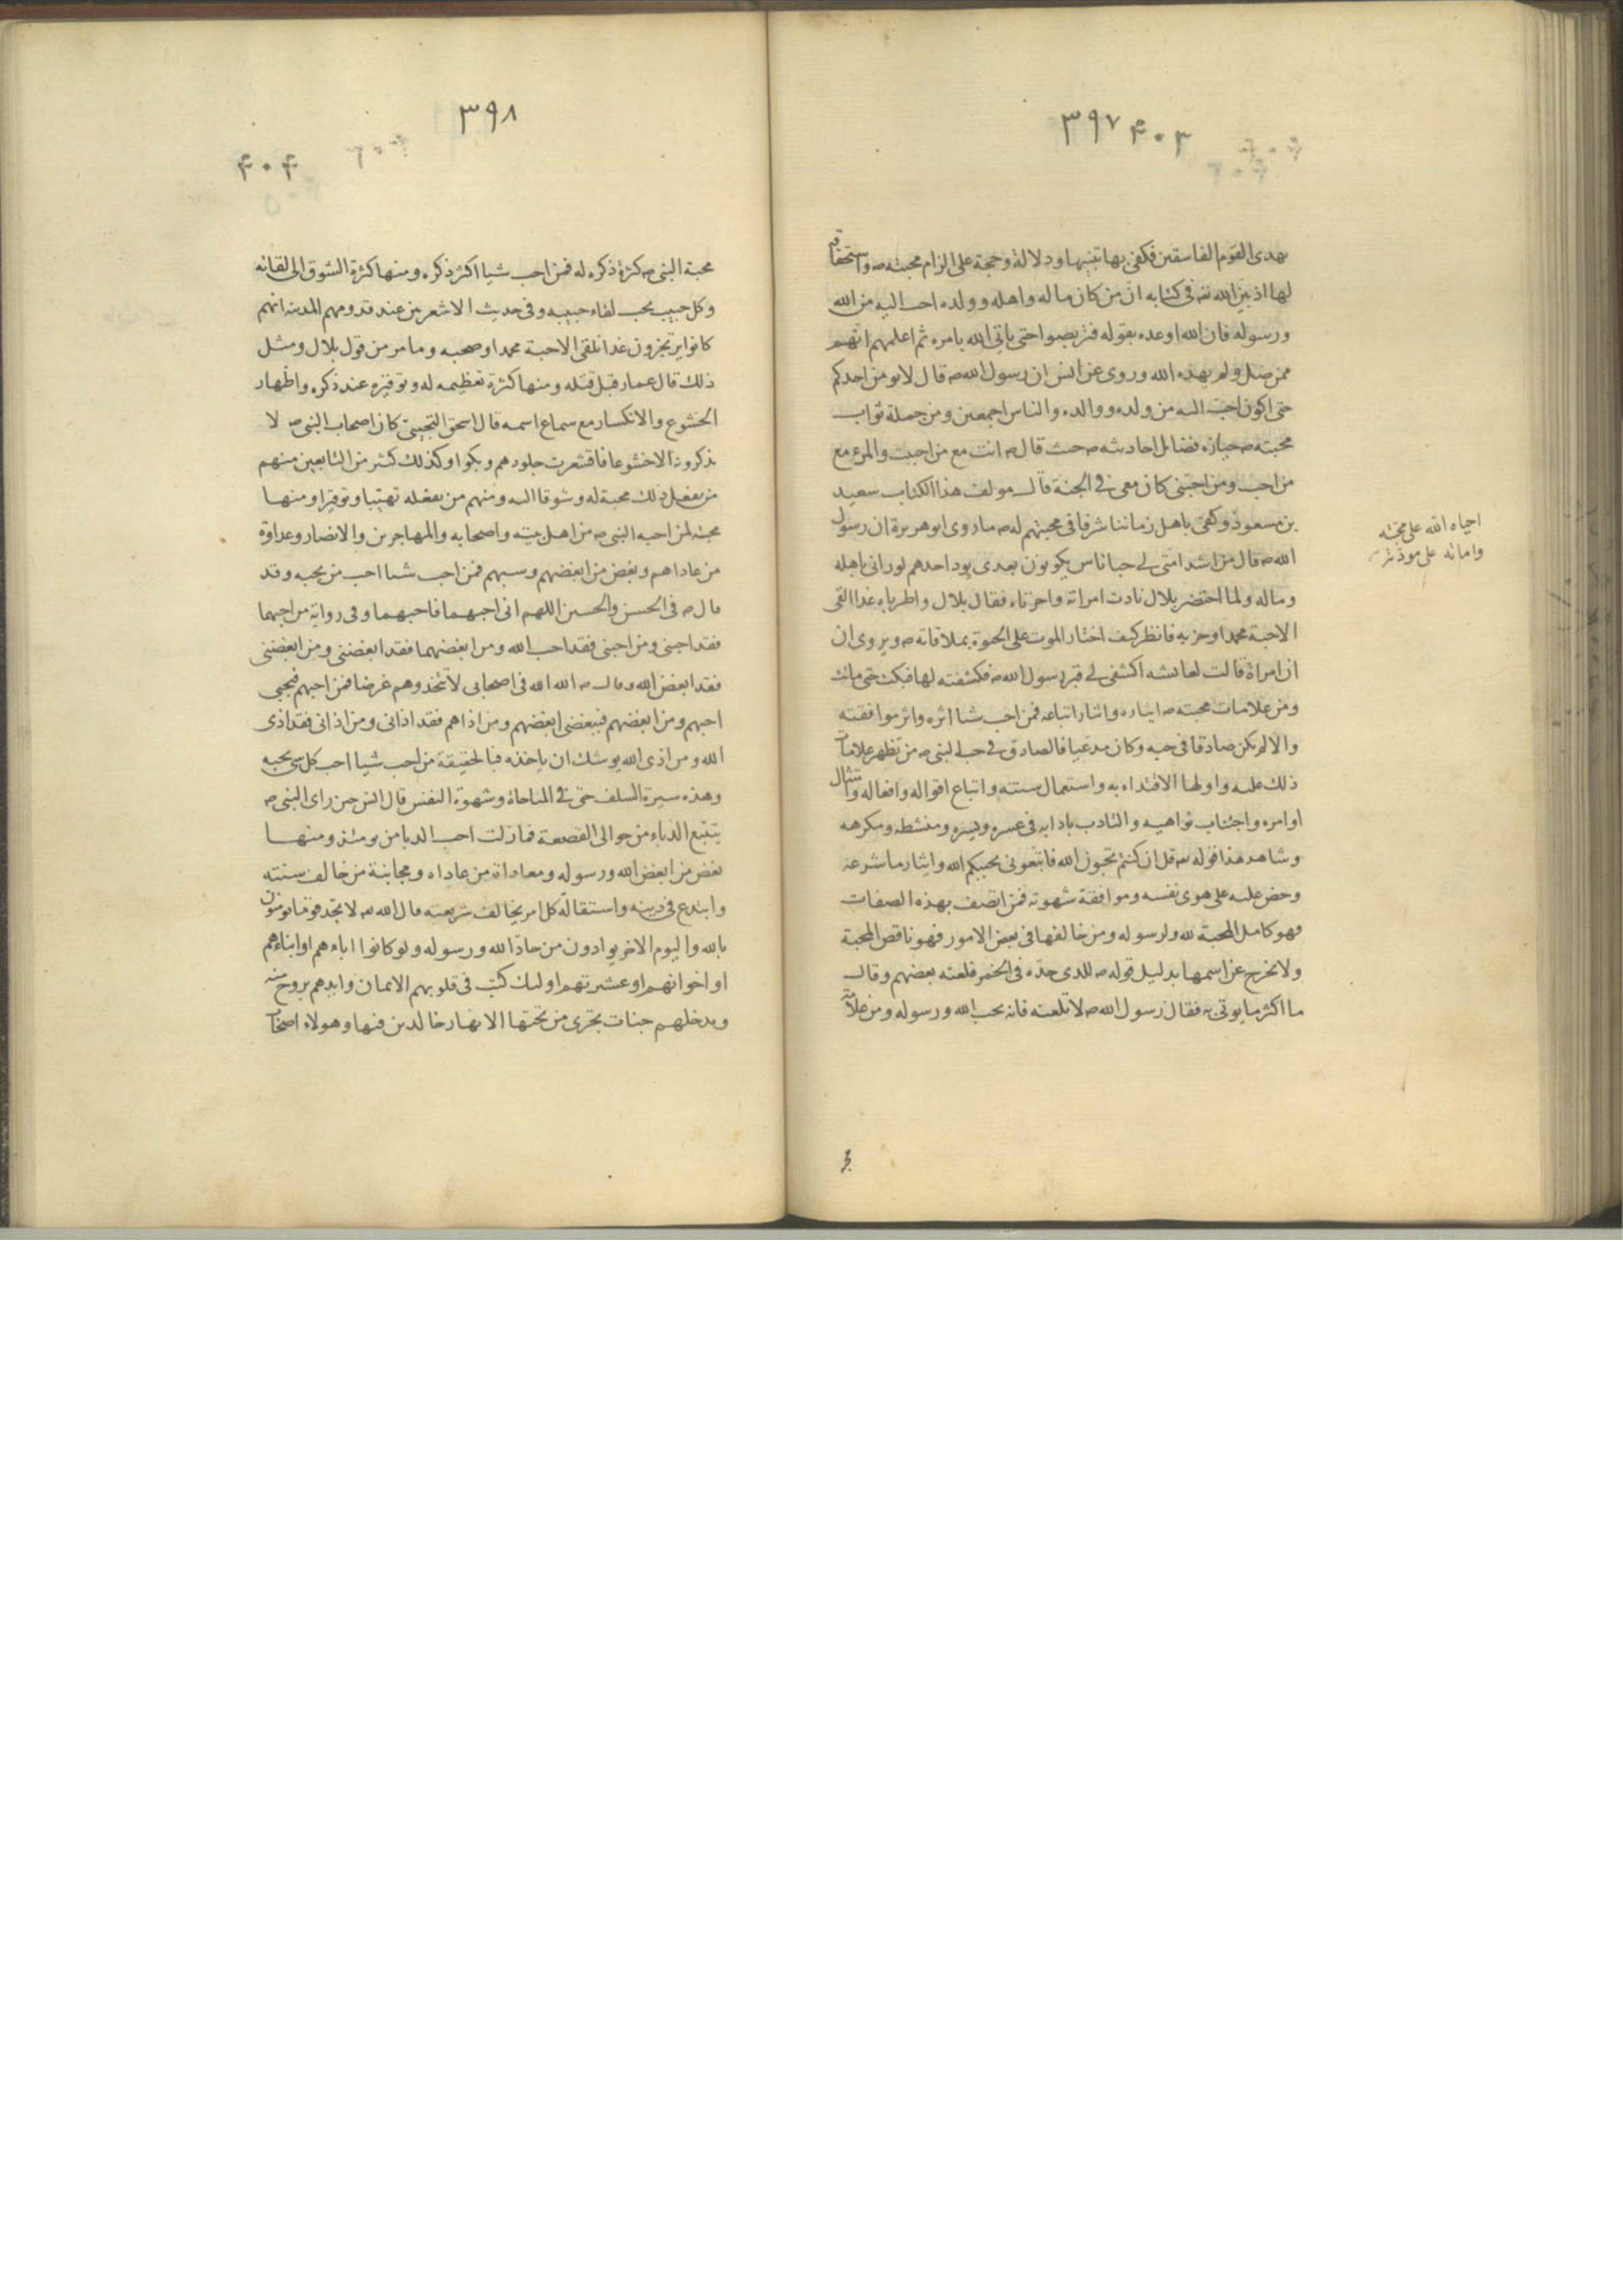 ٣٩٧ ۴٠٣
يهدى القوم الفاسقين فكفى بها تنبيها ودلالة وحجة على الزام محبته ص واستحقاقه
لها اذ بين الله تعه فى كتابه ان من كان ماله واهله وولده احب اليه من الله
ورسوله فان الله اوعده بقوله فتربصوا حتى ياتى الله بامره ثم اعلمهم انهم
ممن ضل ولم يهده الله وروى عن انس ان رسول الله ص قال لا يومن احدكم
حتى اكون احب اليه من ولده ووالده والناس اجمعين ومن جملة ثواب
محبته ص حيازه فضائل احاديثه ص حيث قال ص انت مع من احببت والمرء مع
من احب ومن احبنى كان معى فى الجنة قال مولف هذا الكتاب سعيد
بن مسعود وكفى باهل زماننا شرفا فى محبتهم له ص ما روى ابو هريرة ان رسول
الله ص قال من اشد امتى لى حبا ناس يكونون بعدى يود احدهم لو رانى باهله
وماله ولما احتضر بلال نادت امراته واحزناه فقال بلال واطرباه غدا القى
الاحبة محمدا وحزبه فانظر كيف اختار الموت على الحيوة بملاقاته ص ويروى ان
ان امراة قالت لعائشه اكشفى لى قبر رسول الله ص فكشفته لها فبكت حتى ماتت
ومن علامات محبته ص ايثاره وايثار اتباعه فمن احب شيا اثره واثر موافقته
والا لم يكن صادقا فى حبه وكان مدعيا فالصادق فى حب النبى ص من تظهر علامات
ذلك عليه واولها الاقتداء به واستعمال سنته واتباع اقواله وافعاله وامتثال
اوامره واجتناب نواهيه والتادب بادابه فى عسره ويسره ومنشطه ومكرهه
وشاهد هذا قوله تعه قل ان كنتم تحبون الله فاتبعونى يحببكم الله وايثار ما شرعه
وحض عليه على هوى نفسه وموافقة شهوته فمن اتصف بهذه الصفات
فهو كامل المحبة لله ولرسوله ومن خالفها فى بعض الامور فهو ناقص المحبة
ولا يخرج عن اسمها بدليل قوله ص للذى حده فى الخمر فلعنه بعضهم وقال
ما اكثر ما يوتى به فقال رسول الله ص لا تلعنه فانه يحب الله ورسوله ومن علامة
احياه الله على محبته
واماته على مودته
٣٩٨
۴٠۴
محبة النبى ص كثرة ذكره له فمن احب شيا اكثر ذكره ومنها كثرة الشوق الى لقائه
وكل حبيب يحب لقاء حبيبه وفى حديث الاشعريين عند قدومهم المدينه انهم
كانوا يرتجزون غدا نلقى الاحبة محمدا وصحبه وما مر من قول بلال ومثل
ذلك قال عمار قبل قتله ومنها كثرة تعظيمه له وتوقيره عند ذكره واظهار
الخشوع والانكسار مع سماع اسمه قال اسحق التجيبى كان اصحاب النبى ص لا
يذكرونه الا خشوعا فاقشعرت جلودهم وبكوا وكذلك كثير من التابعين منهم
من يفعل ذلك محبة له وشوقا اليه ومنهم من يفعله تهيبا وتوقيرا ومنها
محبته لمن احبه النبى ص من اهل بيته واصحابه والمهاجرين والانصار وعداوة
من عاداهم وبغض من ابغضهم وسبهم فمن احب شيا احب من يحبه وقد
قال ص فى الحسن والحسين اللهم انى احبهما فاحبهما وفى رواية من احبهما
فقد احبنى ومن احبنى فقد احب الله ومن ابغضهما فقد ابغضنى ومن ابغضنى
فقد ابغض الله وقال ص الله الله فى اصحابى لا تتخذوهم غرضا فمن احبهم فبحبى
احبهم ومن ابغضهم فببغضى ابغضهم ومن اذاهم فقد اذانى ومن اذانى فقد اذى
الله ومن اذى الله يوشك ان ياخذه فبالحقيقة من احب شيا احب كل شى يحبه
وهذه سيرة السلف حتى فى المباحاة وشهوة النفس قال انس حين راى النبى ص
يتتبع الدباء من حوالى القصعة فما زلت احب الدبا من يومئذ ومنها
بغض من ابغض الله ورسوله ومعاداة من عاداه ومجانبة من خالف سنته
وابتدع فى دينه واستقاله كل امر يخالف شريعته قال الله تعه لا تجد قوما يومنون
بالله واليوم الاخر يوادون من حاد الله ورسوله ولو كانوا اباءهم او ابناءهم
او اخوانهم او عشيرتهم اولئك كتب فى قلوبهم الايمان وايدهم بروح منه
ويدخلهم جنات تجرى من تحتها الانهار خالدين فيها وهولاء اصحاب